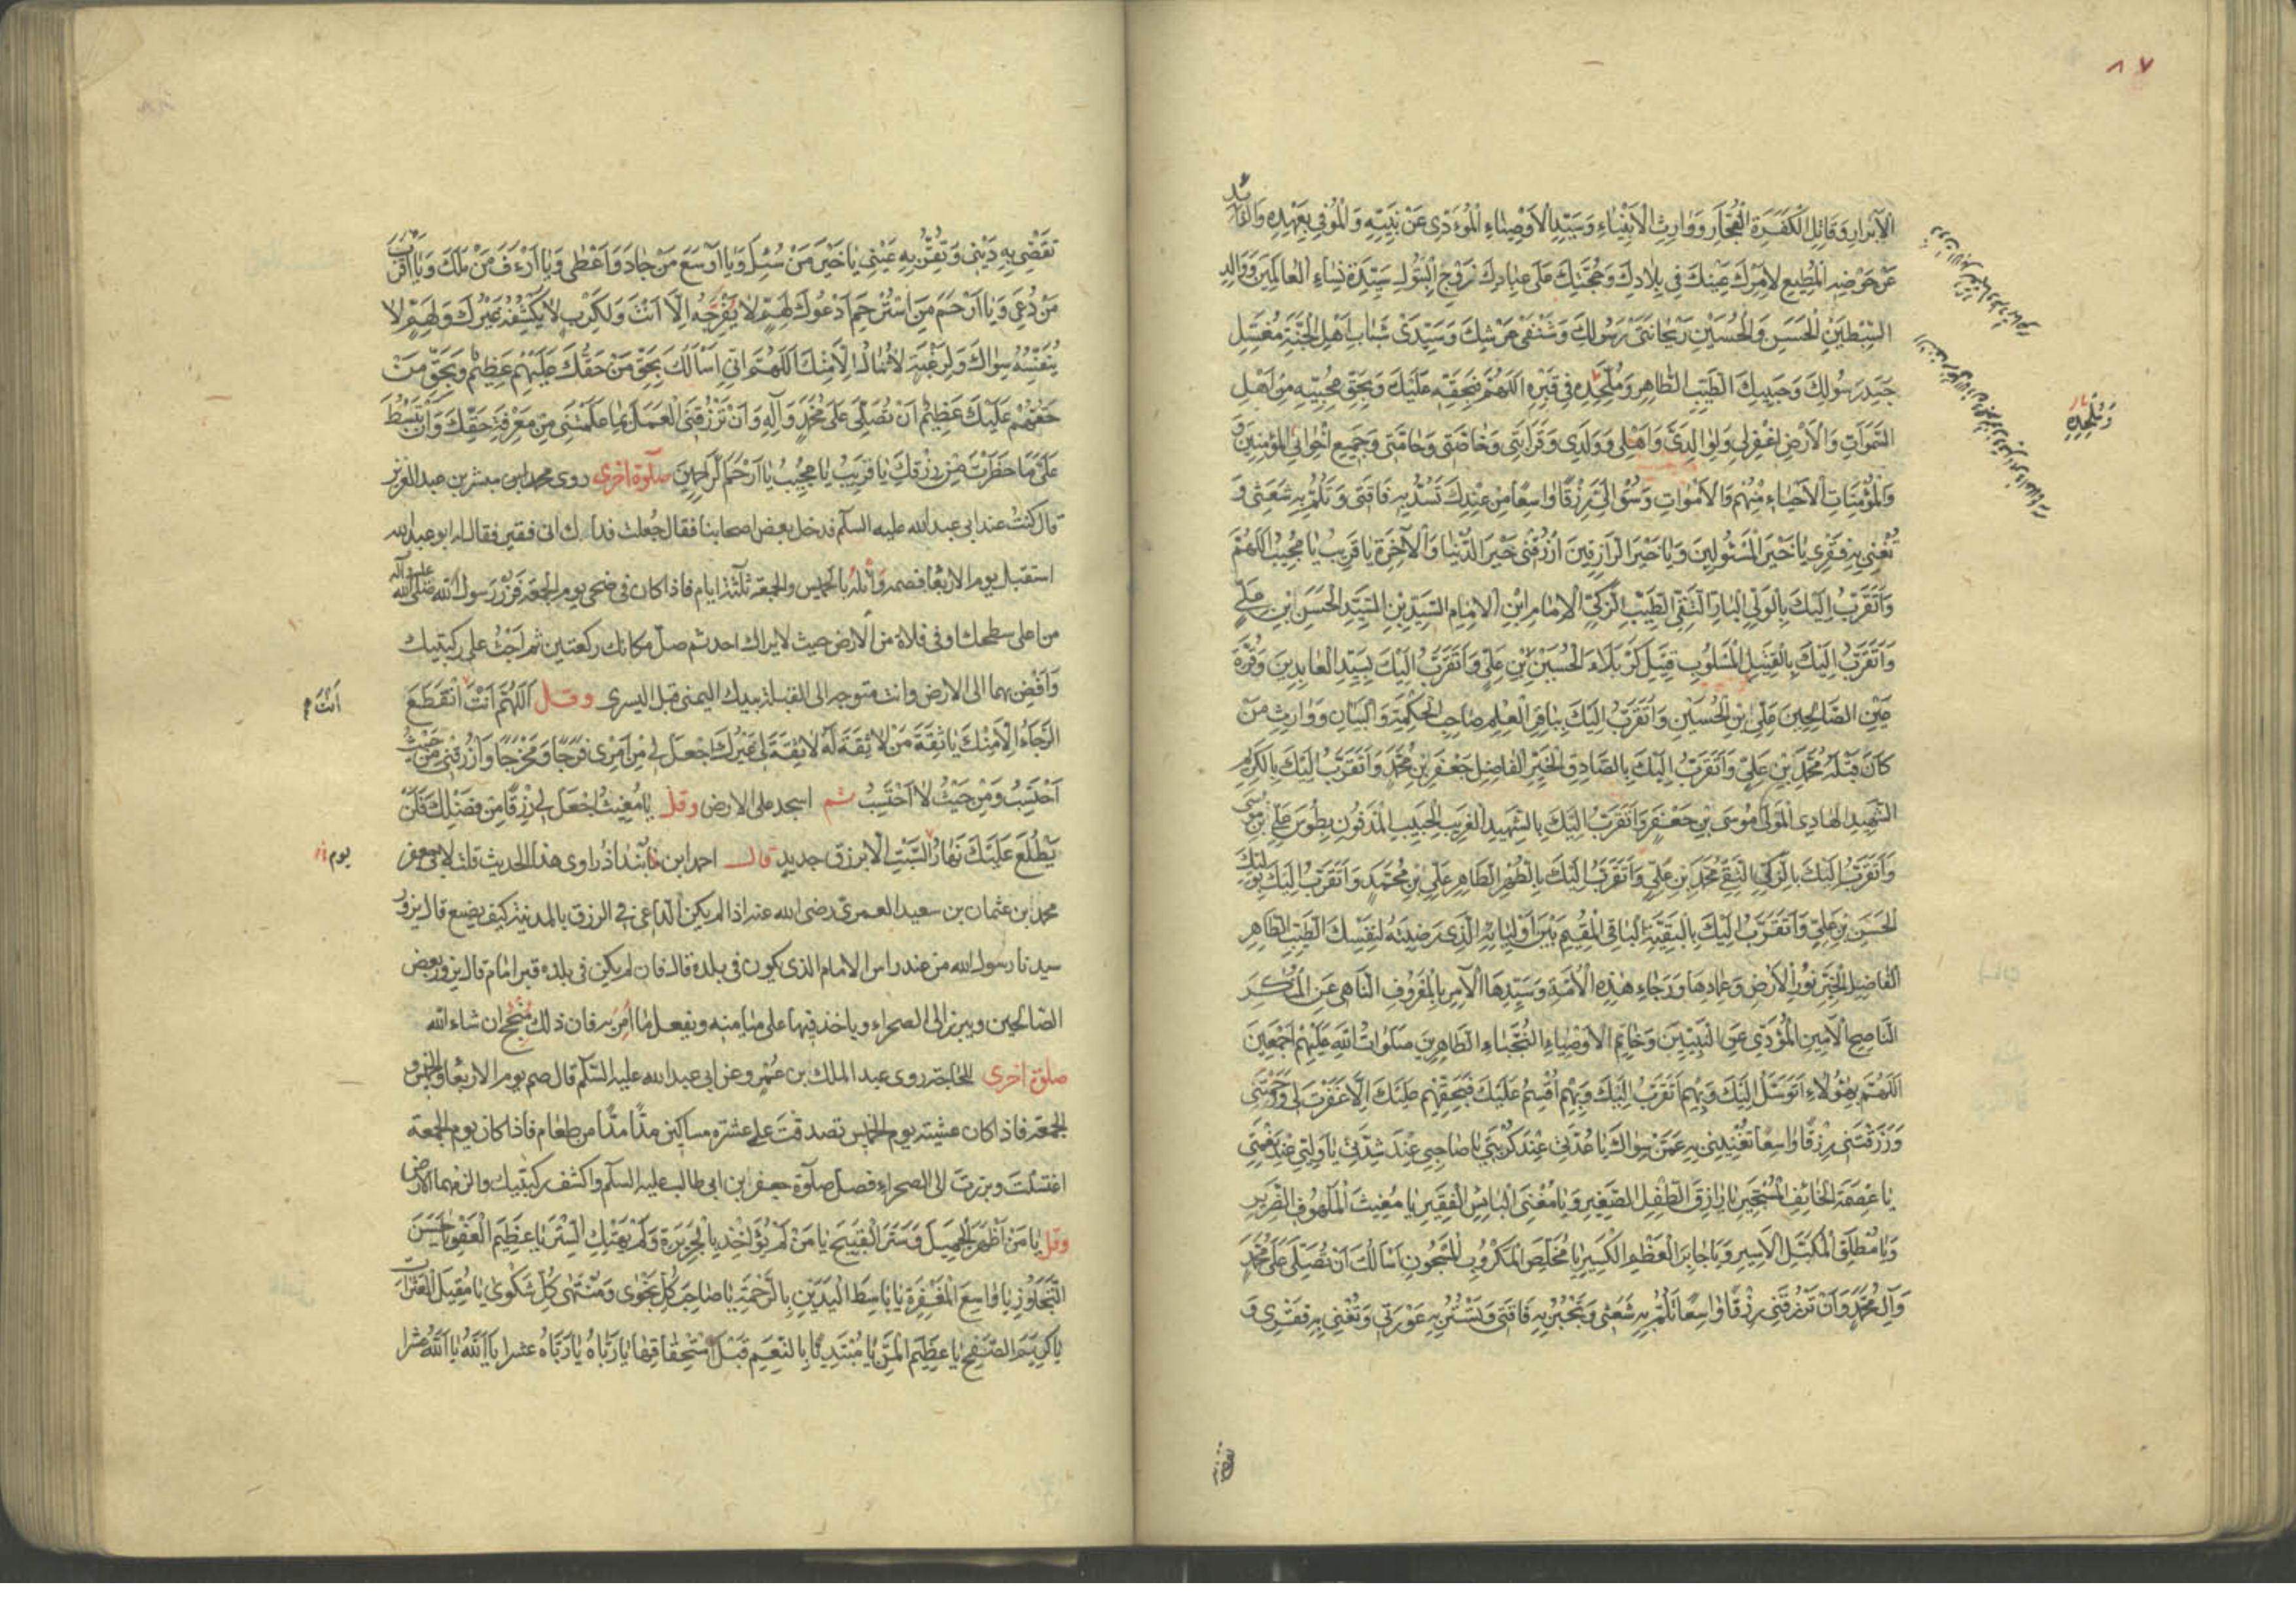 ٨٧
الْاَبْرارِ وَقاتِلِ الْكَفَرَةِ الْفُجّارِ وَوارِثِ الْاَنْبِياءِ وَسَيِّدِ الْاَوْصِياءِ الْمُؤَدّى عَنْ نَبِيِّهِ وَالْمُوفى بِعَهْدِهِ وَالذّائِدِ
عَنْ حَوْضِهِ الْمُطيعِ لِاَمْرِكَ عَيْنِكَ فى بِلادِكَ وَحُجَّتِكَ عَلى عِبادِكَ زَوْجِ الْبَتُولِ سَيِّدَةِ نِساءِ الْعالَمينَ وَوالِدِ
السِّبْطَيْنِ الْحَسَنِ وَالْحُسَيْنِ رَيْحانَتَىْ رَسُولِكَ وَشَنْفَىْ عَرْشِكَ وَسَيِّدَىْ شَبابِ اَهْلِ الْجَنَّةِ مُغَسِّلِ
جَسَدِ رَسُولِكَ وَحَبيبِكَ الطَّيِّبِ الطّاهِرِ وَمُلْحِدِهِ فى قَبْرِهِ اَللّهُمَّ فَبِحَقِّهِ عَلَيْكَ وَبِحَقِّ مُحِبّيهِ مِنْ اَهْلِ
السَّمواتِ وَالْاَرْضِ اغْفِرْلى وَلِوالِدَىَّ وَاَهْلى وَوَلَدى وَقَرابَتى وَخاصَّتى وَعامَّتى وَجَميعِ اِخْوانِىَ الْمُؤْمِنينَ
وَالْمُؤْمِناتِ الْاَحْياءِ مِنْهُمْ وَالْاَمْواتِ وَسُقْ اِلَىَّ رِزْقًا واسِعًا مِنْ عِنْدِكَ تَسُدُّ بِهِ فاقَتى وَتَلُمُّ بِهِ شَعَثى وَ
تُغْنى بِهِ فَقْرى يا خَيْرَ الْمَسْئُولينَ وَيا خَيْرَ الرّازِقينَ ارْزُقْنى خَيْرَ الدُّنْيا وَالْآخِرَةِ يا قَريبُ يا مُجيبُ اَللّهُمَّ
وَاَتَقَرَّبُ اِلَيْكَ بِالْوَلِىِّ الْبارِّ التَّقِىِّ الطَّيِّبِ الزَّكِىِّ الْاِمامِ ابْنِ الْاِمامِ السَّيِّدِ بْنِ السَّيِّدِ الْحَسَنِ ابْنِ عَلِىٍّ
وَاَتَقَرَّبُ اِلَيْكَ بِالْقَتيلِ الْمَسْلُوبِ قَتيلِ كَرْبَلاءَ الْحُسَيْنِ بْنِ عَلِىٍّ وَاَتَقَرَّبُ اِلَيْكَ بِسَيِّدِ الْعابِدينَ وَقُرَّةِ
عَيْنِ الصّالِحينَ عَلِىِّ بْنِ الْحُسَيْنِ وَاَتَقَرَّبُ اِلَيْكَ بِباقِرِ الْعِلْمِ صاحِبِ الْحِكْمَةِ وَالْبَيانِ وَوارِثِ مَنْ
كانَ قَبْلَهُ مُحَمَّدِ بْنِ عَلِىٍّ وَاَتَقَرَّبُ اِلَيْكَ بِالصّادِقِ الْخَيِّرِ الْفاضِلِ جَعْفَرِ بْنِ مُحَمَّدٍ وَاَتَقَرَّبُ اِلَيْكَ بِالْكَريمِ
الشَّهيدِ الْهادِى الْمَوْلى مُوسَى بْنِ جَعْفَرٍ وَاَتَقَرَّبُ اِلَيْكَ بِالشَّهيدِ الْغَريبِ الْحَبيبِ الْمَدْفُونِ بِطُوسَ عَلِىِّ بْنِ مُوسى
وَاَتَقَرَّبُ اِلَيْكَ بِالزَّكِىِّ التَّقِىِّ مُحَمَّدِ بْنِ عَلِىٍّ وَاَتَقَرَّبُ اِلَيْكَ بِالطُّهْرِ الطّاهِرِ عَلِىِّ بْنِ مُحَمَّدٍ وَاَتَقَرَّبُ اِلَيْكَ بِوَلِيِّكَ
الْحَسَنِ بْنِ عَلِىٍّ وَاَتَقَرَّبُ اِلَيْكَ بِالْبَقِيَّةِ الْباقِى الْمُقيمِ بَيْنَ اَوْلِيائِهِ الَّذى رَضيتَهُ لِنَفْسِكَ الطَّيِّبِ الطّاهِرِ
الْفاضِلِ الْخَيِّرِ نُورِ الْاَرْضِ وَعِمادِها وَرَجاءِ هذِهِ الْاُمَّةِ وَسَيِّدِهَا الْآمِرِ بِالْمَعْرُوفِ النّاهى عَنِ الْمُنْكَرِ
النّاصِحِ الْاَمينِ الْمُؤَدّى عَنِ النَّبِيّينَ وَخاتَمِ الْاَوْصِياءِ النُّجَباءِ الطّاهِرينَ صَلَواتُ اللهِ عَلَيْهِمْ اَجْمَعينَ
اَللّهُمَّ بِهؤُلاءِ اَتَوَسَّلُ اِلَيْكَ وَبِهِمْ اَتَقَرَّبُ اِلَيْكَ وَبِهِمْ اُقْسِمُ عَلَيْكَ فَبِحَقِّهِمْ عَلَيْكَ اِلّا غَفَرْتَ لى وَرَحِمْتَنى
وَرَزَقْتَنى رِزْقًا واسِعًا تُغْنينى بِهِ عَمَّنْ سِواكَ يا عُدَّتى عِنْدَ كُرْبَتى يا صاحِبى عِنْدَ شِدَّتى يا وَلِيّى عِنْدَ نِعْمَتى
يا عِصْمَةَ الْخائِفِ الْمُسْتَجيرِ يا رازِقَ الطِّفْلِ الصَّغيرِ وَيا مُغْنِىَ الْبائِسِ الْفَقيرِ يا مُغيثَ الْمَلْهُوفِ الضَّريرِ
وَيا مُطْلِقَ الْمُكَبَّلِ الْاَسيرِ وَيا جابِرَ الْعَظْمِ الْكَسيرِ يا مُخَلِّصَ الْمَكْرُوبِ الْمَسْجُونِ اَسْاَلُكَ اَنْ تُصَلِّىَ عَلى مُحَمَّدٍ
وَآلِ مُحَمَّدٍ وَاَنْ تَرْزُقَنى رِزْقًا واسِعًا تَلُمُّ بِهِ شَعَثى وَتَجْبُرُ بِهِ فاقَتى وَتَسْتُرُ بِهِ عَوْرَتى وَتُغْنى بِهِ فَقْرى وَ
وَمُلْحِدِهِ
تَقْضى بِهِ دَيْنى وَتُقِرُّ بِهِ عَيْنى يا خَيْرَ مَنْ سُئِلَ وَيا اَوْسَعَ مَنْ جادَ وَاَعْطى وَيا اَرْءَفَ مَنْ مَلَكَ وَيا اَقْرَبَ
مَنْ دُعِىَ وَيا اَرْحَمَ مَنِ اسْتُرْحِمَ اَدْعُوكَ لِهَمٍّ لا يُفَرِّجُهُ اِلّا اَنْتَ وَلِكَرْبٍ لا يَكْشِفُهُ غَيْرُكَ وَلِهَمٍّ لا
يُنَفِّسُهُ سِواكَ وَلِرَغْبَةٍ لا تُنالُ اِلّا مِنْكَ اَللّهُمَّ اِنّى اَسْاَلُكَ بِحَقِّ مَنْ حَقُّكَ عَلَيْهِمْ عَظيمٌ وَبِحَقِّ مَنْ
حَقُّهُمْ عَلَيْكَ عَظيمٌ اَنْ تُصَلِّىَ عَلى مُحَمَّدٍ وَآلِهِ وَاَنْ تَرْزُقَنِى الْعَمَلَ بِما عَلَّمْتَنى مِنْ مَعْرِفَةِ حَقِّكَ وَاَنْ تَبْسُطَ
عَلَىَّ ما حَظَرْتَ مِنْ رِزْقِكَ يا قَريبُ يا مُجيبُ يا اَرْحَمَ الرّاحِمينَ صلوة اخرى روى محمد ابن مبشر بن عبدالعزيز
قال كنت عند ابى عبدالله عليه السلام فدخل بعض اصحابنا فقال جعلت فداك انى فقير فقال له ابو عبدالله
استقبل يوم الاربعا فصمه واتله بالخميس والجمعة ثلثة ايام فاذا كان فى ضحى يوم الجمعة فزر رسول الله صلى الله عليه وآله
من اعلى سطحك او فى فلاة من الارض حيث لا يراك احد ثم صل مكانك ركعتين ثم اجث على ركبتيك
وافض بهما الى الارض وانت متوجه الى القبلة بيدك اليمنى قبل اليسرى وقل اَللّهُمَّ اَنْتَ انْقَطَعَ
اَنْتَ م
الرَّجاءُ اِلّا مِنْكَ يا ثِقَةَ مَنْ لا ثِقَةَ لَهُ لا ثِقَةَ لى غَيْرُكَ اجْعَلْ لى مِنْ اَمْرى فَرَجًا وَمَخْرَجًا وَارْزُقْنى مِنْ حَيْثُ
اَحْتَسِبُ وَمِنْ حَيْثُ لا اَحْتَسِبُ ثم اسجد على الارض وقل يا مُغيثُ اجْعَلْ لى رِزْقًا مِنْ فَضْلِكَ فَلَنْ
يَطْلُعَ عَلَيْكَ نَهارُ السَّبْتِ اِلّا بِرِزْقٍ جَديدٍ قال احمد ابن مابنداذ راوى هذا الحديث قلت لابى جعفر
يوم
محمد ابن عثمان بن سعيد العمرى رضى الله عنه اذا لم يكن الداعى فى الرزق بالمدينة كيف يصنع قال يزور
سيدنا رسول الله من عند راس الامام الذى يكون فى بلده قال فان لم يكن فى بلده قبر امام قال يزور بعض
الصالحين ويبرز الى الصحراء وياخذ فيها على ميامنه ويفعل ما امر به فان ذلك منجح ان شاء الله
صلوة اخرى للحاجة روى عبد الملك بن عمرو عن ابى عبدالله عليه السلام قال صم يوم الاربعا والخميس و
الجمعة فاذا كان عشية يوم الخميس تصدقت على عشرة مساكين مدًا مدًا من طعام فاذا كان يوم الجمعة
اغتسلت وبرزت الى الصحراء فصل صلوة جعفر بن ابى طالب عليه السلام واكشف ركبتيك والزمهما الارض
وقل يا مَنْ اَظْهَرَ الْجَميلَ وَسَتَرَ الْقَبيحَ يا مَنْ لَمْ يُؤاخِذْ بِالْجَريرَةِ وَلَمْ يَهْتِكِ السِّتْرَ يا عَظيمَ الْعَفْوِ يا حَسَنَ
التَّجاوُزِ يا واسِعَ الْمَغْفِرَةِ يا باسِطَ الْيَدَيْنِ بِالرَّحْمَةِ يا صاحِبَ كُلِّ نَجْوى وَمُنْتَهى كُلِّ شَكْوى يا مُقيلَ الْعَثَراتِ
يا كَريمَ الصَّفْحِ يا عَظيمَ الْمَنِّ يا مُبْتَدِئًا بِالنِّعَمِ قَبْلَ اسْتِحْقاقِها يا رَبّاهُ يا رَبّاهُ عشرا يا اَللهُ يا اَللهُ عشرا